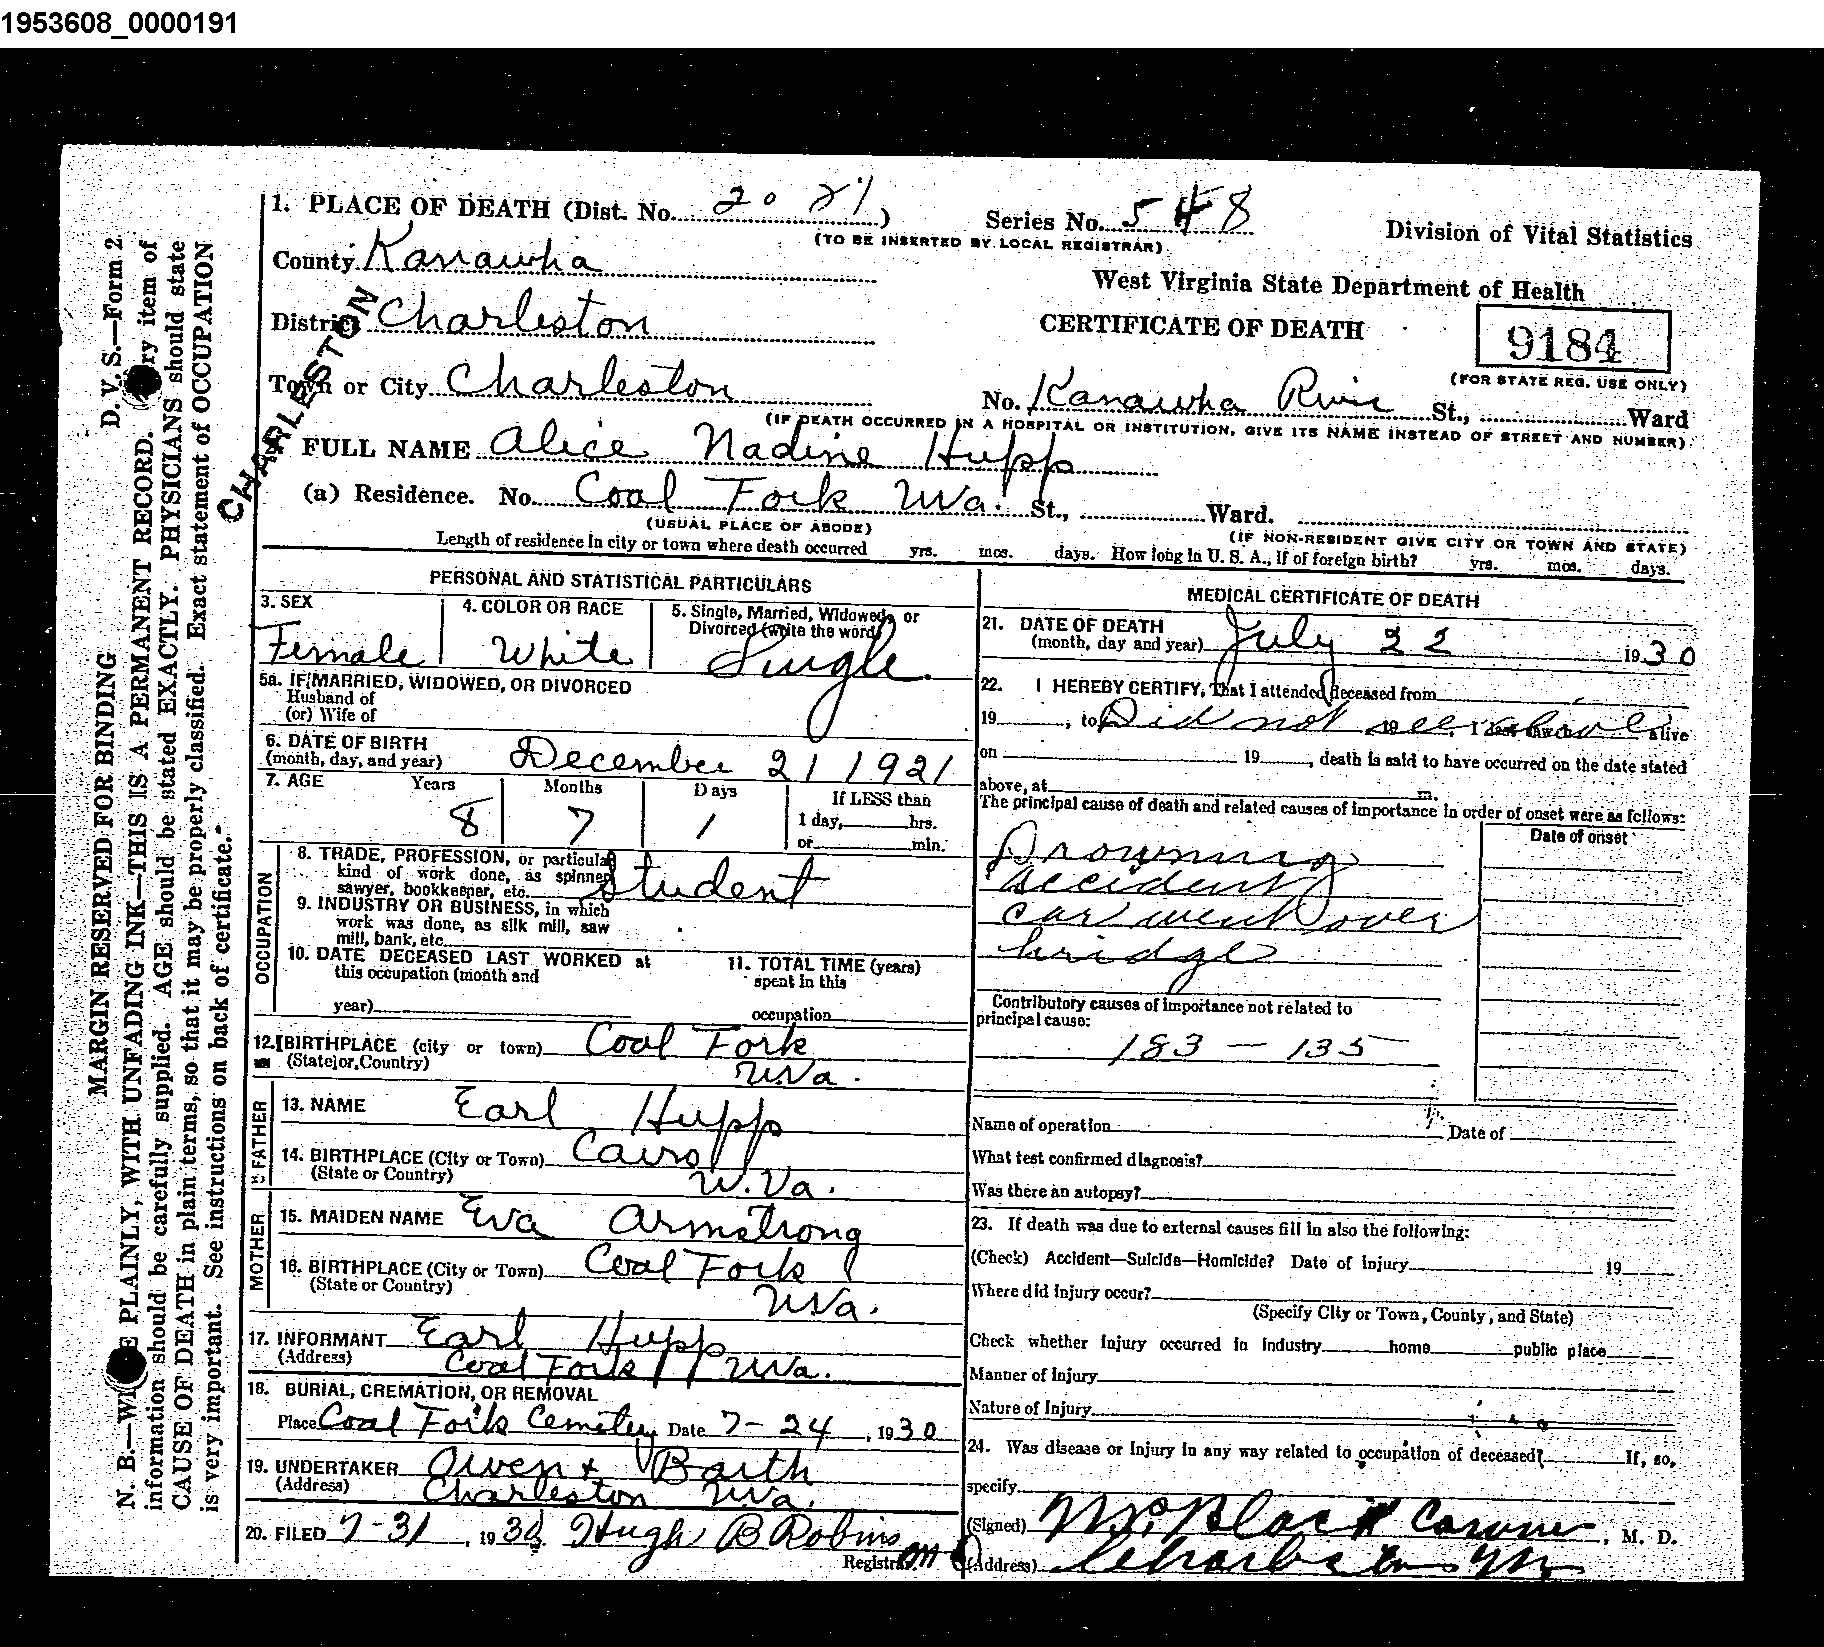 1953608_0000191
1. PLACE OF DEATH (Dist. No. 20 21)
Series No. 548
(TO BE INSERTED BY LOCAL REGISTRAR)
Division of Vital Statistics
County Kanawha
West Virginia State Department of Health
District Charleston
CERTIFICATE OF DEATH
9184
(FOR STATE REG. USE ONLY)
CHARLESTON
Town or City Charleston
No. Kanawha River St., Ward
(IF DEATH OCCURRED IN A HOSPITAL OR INSTITUTION, GIVE ITS NAME INSTEAD OF STREET AND NUMBER)
FULL NAME Alice Nadine Hupp
(a) Residence. No. Coal Fork W Va. St., Ward.
(USUAL PLACE OF ABODE)
(IF NON-RESIDENT GIVE CITY OR TOWN AND STATE)
Length of residence in city or town where death occurred yrs. mos. days. How long in U. S. A., if of foreign birth? yrs. mos. days.
PERSONAL AND STATISTICAL PARTICULARS
3. SEX
4. COLOR OR RACE
5. Single, Married, Widowed, or
Divorced (write the word)
Female White Single.
5a. IF MARRIED, WIDOWED, OR DIVORCED
Husband of
(or) Wife of
6. DATE OF BIRTH
(month, day, and year) December 21 1921
7. AGE Years Months Days If LESS than
8 7 1
1 day, hrs.
or min.
OCCUPATION
8. TRADE, PROFESSION, or particular
kind of work done, as spinner,
sawyer, bookkeeper, etc. Student
9. INDUSTRY OR BUSINESS, in which
work was done, as silk mill, saw
mill, bank, etc.
10. DATE DECEASED LAST WORKED at
this occupation (month and
year)
11. TOTAL TIME (years)
spent in this
occupation
12. BIRTHPLACE (city or town) Coal Fork
(State or Country) W Va.
FATHER
13. NAME Earl Hupp
14. BIRTHPLACE (City or Town) Cairo
(State or Country) W. Va.
MOTHER
15. MAIDEN NAME Eva Armstrong
16. BIRTHPLACE (City or Town) Coal Fork
(State or Country) W Va.
17. INFORMANT Earl Hupp
(Address) Coal Fork W Va.
18. BURIAL, CREMATION, OR REMOVAL
Place Coal Fork Cemetery Date 7-24, 1930
19. UNDERTAKER Owen & Barth
(Address) Charleston W Va.
20. FILED 7-31, 1930 Hugh B Robins
Registrar.
MEDICAL CERTIFICATE OF DEATH
21. DATE OF DEATH
(month, day and year) July 22 1930
22. I HEREBY CERTIFY, That I attended deceased from
19 , to 19 I last saw h alive
Did not see alive
on 19 , death is said to have occurred on the date stated
above, at m.
The principal cause of death and related causes of importance in order of onset were as follows:
Date of onset
Drowning
accident
car went over
bridge
Contributory causes of importance not related to
principal cause:
183 - 135
Name of operation Date of
What test confirmed diagnosis?
Was there an autopsy?
23. If death was due to external causes fill in also the following:
(Check) Accident—Suicide—Homicide? Date of injury 19
Where did injury occur?
(Specify City or Town, County, and State)
Check whether injury occurred in industry home public place
Manner of injury
Nature of injury
24. Was disease or injury in any way related to occupation of deceased? If, so,
specify
(Signed) Black Coroner, M. D.
(Address) Charleston
D. V. S.—Form 2
MARGIN RESERVED FOR BINDING
N. B.—WRITE PLAINLY, WITH UNFADING INK—THIS IS A PERMANENT RECORD. Every item of
information should be carefully supplied. AGE should be stated EXACTLY. PHYSICIANS should state
CAUSE OF DEATH in plain terms, so that it may be properly classified. Exact statement of OCCUPATION
is very important. See instructions on back of certificate.